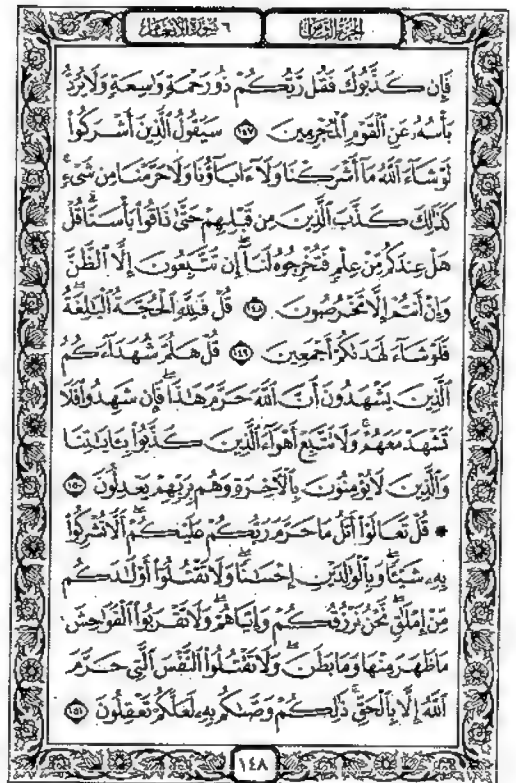 الجزء الثامن
٦ سورة الأنعام
فَإِن كَذَّبُوكَ فَقُل رَّبُّكُمْ ذُو رَحْمَةٍ وَٰسِعَةٍ وَلَا يُرَدُّ
بَأْسُهُۥ عَنِ ٱلْقَوْمِ ٱلْمُجْرِمِينَ ١٤٧ سَيَقُولُ ٱلَّذِينَ أَشْرَكُوا۟
لَوْ شَآءَ ٱللَّهُ مَآ أَشْرَكْنَا وَلَآ ءَابَآؤُنَا وَلَا حَرَّمْنَا مِن شَىْءٍ
كَذَٰلِكَ كَذَّبَ ٱلَّذِينَ مِن قَبْلِهِمْ حَتَّىٰ ذَاقُوا۟ بَأْسَنَا قُلْ
هَلْ عِندَكُم مِّنْ عِلْمٍ فَتُخْرِجُوهُ لَنَآ إِن تَتَّبِعُونَ إِلَّا ٱلظَّنَّ
وَإِنْ أَنتُمْ إِلَّا تَخْرُصُونَ ١٤٨ قُلْ فَلِلَّهِ ٱلْحُجَّةُ ٱلْبَٰلِغَةُ
فَلَوْ شَآءَ لَهَدَىٰكُمْ أَجْمَعِينَ ١٤٩ قُلْ هَلُمَّ شُهَدَآءَكُمُ
ٱلَّذِينَ يَشْهَدُونَ أَنَّ ٱللَّهَ حَرَّمَ هَٰذَا فَإِن شَهِدُوا۟ فَلَا
تَشْهَدْ مَعَهُمْ وَلَا تَتَّبِعْ أَهْوَآءَ ٱلَّذِينَ كَذَّبُوا۟ بِـَٔايَٰتِنَا
وَٱلَّذِينَ لَا يُؤْمِنُونَ بِٱلْءَاخِرَةِ وَهُم بِرَبِّهِمْ يَعْدِلُونَ ١٥٠
* قُلْ تَعَالَوْا۟ أَتْلُ مَا حَرَّمَ رَبُّكُمْ عَلَيْكُمْ أَلَّا تُشْرِكُوا۟
بِهِۦ شَيْـًٔا وَبِٱلْوَٰلِدَيْنِ إِحْسَٰنًا وَلَا تَقْتُلُوٓا۟ أَوْلَٰدَكُم
مِّنْ إِمْلَٰقٍ نَّحْنُ نَرْزُقُكُمْ وَإِيَّاهُمْ وَلَا تَقْرَبُوا۟ ٱلْفَوَٰحِشَ
مَا ظَهَرَ مِنْهَا وَمَا بَطَنَ وَلَا تَقْتُلُوا۟ ٱلنَّفْسَ ٱلَّتِى حَرَّمَ
ٱللَّهُ إِلَّا بِٱلْحَقِّ ذَٰلِكُمْ وَصَّىٰكُم بِهِۦ لَعَلَّكُمْ تَعْقِلُونَ ١٥١
١٤٨